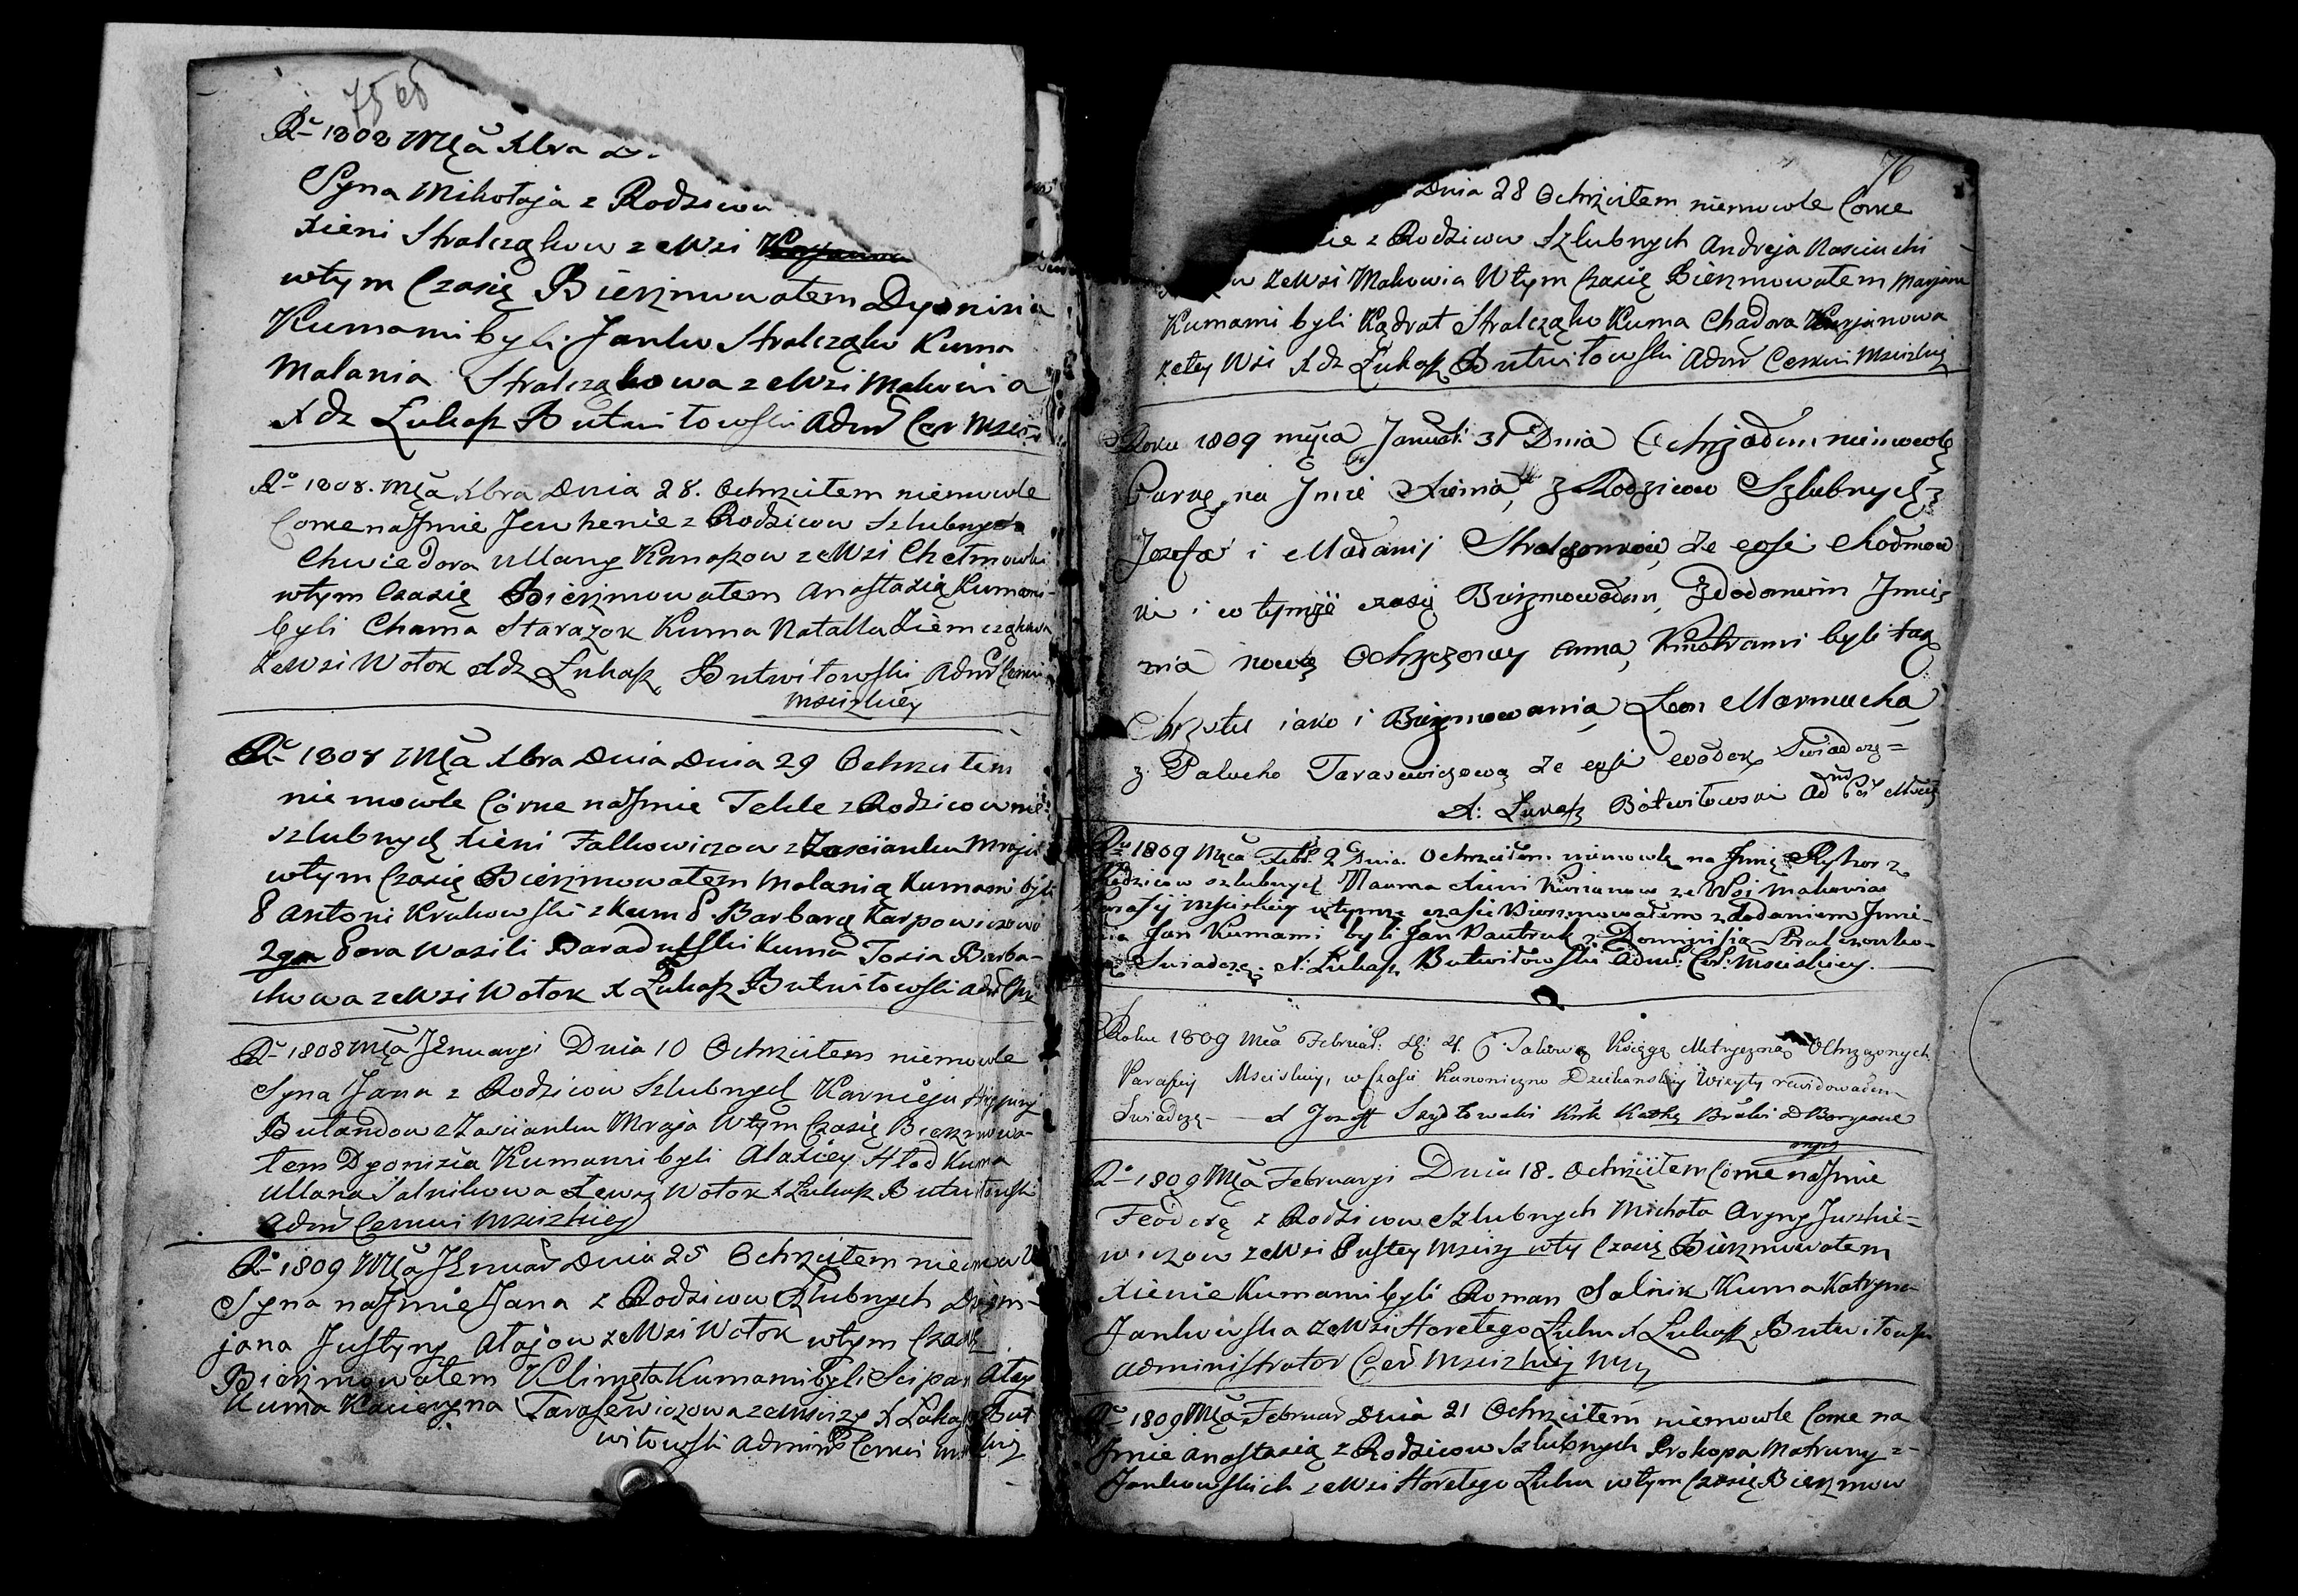 75 об
Rº 1808 Mca Xbra D.
Syna Mikołaja z Rodziców
Xieni Stralcząkow ze Wsi
wtym Czasię Bierzmowałem Dyonizia
Kumami byli Janko Stralcząk Kuma
Malania Stralczakowa ze Wsi Makowia
X dz Łukasz Butwiłowski Adm Cer
Rº 1808. Mca Xbra Dnia 28. Ochrzciłem niemowle
Corke na Jmie Jewhenie z Rodzicow Szlubnych
Chwiedora Ullany Kanaszow ze Wsi Chełmowki
wtym Czasię Bierzmowałem Anastazią Kumami
byli Chama Starazok Kuma Natalla
ze Wsi Wołok X dz Łukasz Butwiłowski Adm Cerkwi
Msciżkiey
Rº 1808 Mca Xbra Dnia Dnia 29 Ochrzciłem
niemowle Córke na Jmie Tekle z Rodzicow nie
szlubnych Xieni Falkowiczow z Zascianku
wtym Czasię Bierzmowałem Malanią Kumami byli
P Antoni Krukowski z kumą P. Barbarą Karpowiczowo
2ga Para Wasili Kuma Tosia
ze Wsi Wołok X Łukasz Butwiłowski Adm
Rº 1808 Mca Jenuarji Dnia 10 Ochrzciłem niemowle
Syna Jana z Rodzicow Szlubnych Karnieja
z Zascianku Mraja Wtym Czasię Bierzmowa-
łem Dyonizia Kumami byli Alaxiey Hład Kuma
Ullana Salnikowa ze Wołok X Łukasz Butwiłowski
Adm Cerkwi Mscizkiey
Rº 1809 Mca Jenuar Dnia 25 Ochrzciłem niemowle
Syna na Jmie Jana z Rodzicow Szlubnych Dziem-
jana Justyny Ałajow ze Wsi Wołok wtym Czasię
Bierzmowałem Klimęta Kumami byli Scipan Ałay
Kuma Kacieryna Tarasewiczowa X Łukasz But
wiłowski Admin Cerkwi
76
Dnia 28 Ochrzciłem niemowle Corke
z Rodzicow Szlubnych Andreja
ze Wsi Makowia Wtym Czasię Bierzmowałem Marjana
Kumami byli Kądrat Stralcząk Kuma Chadora Kurjanowa
ztey Wsi X dz Łukasz Butwiłowski Adm Cerkwi Mscizkiej
Roku 1809 mca Januar: 31 Dnia Ochrzciłem niemowlę
Curkę, na Jmie Xienia, z Rodzicow Szlubnych,
Jozefa i Małanij ze wsi
ki i w tymże czasię Bierzmowałem, z dodaniem Jmie
nia nowo Ochrzczoney Anna, Kmotrami byli tak
Chrztu iako i Bierzmowania, Leon Marmucha
z Palucho Tarasewiczową ze wsi Swiadczę=
X: Łukasz Bótwiłowski Ad
Rº 1809 Mca Feb: 2 Dnia Ochrzciłem niemowlę na Jmię Ryhor z
Rodzicow szlubnych Nauma Xieni Kurianow ze Wsi Makowia
Parafij wtymże czasie Bierzmowałem z dodaniem Jmie-
nia Jan Kumami byli Jan Pautruk z Dominisią Stralczonko-
wą Swiadczę. X. Łukasz Butwiłowski Adm. Cer. Mscizkiey.
Roku 1809 Mca Februar: 6 Takową Księgę Metryczną Ochrzczonych
Parafij Msciskiey, w Czasie Kanoniczno Dziekanskiey Wizyty rewidowałem
Swiadczę - X Jozeff Szydłowski
Rº 1809 Mca Februarji Dnia 18. Ochrzciłem Córke na Jmie
Feodorę z Rodzicow Szlubnych Michała Aryny Juszkie=
wiczow ze Wsi Pustey wty Czasię Bierzmowałem
Xienie Kumami byli Roman Salnik Kuma Katryna
Jankowska ze Wsi Horełego Łuhu X Łukasz Butwiłowski
Administrator Cer Mscizkiej
Rº 1809 Mca Februar Dnia 21 Ochrzciłem niemowle Corke na
Jmie Anastazią z Rodzicow Szlubnych Prokopa Matruny =
Jankowskich ze Wsi Horełego Łuhu wtym Czasię Bierzmow